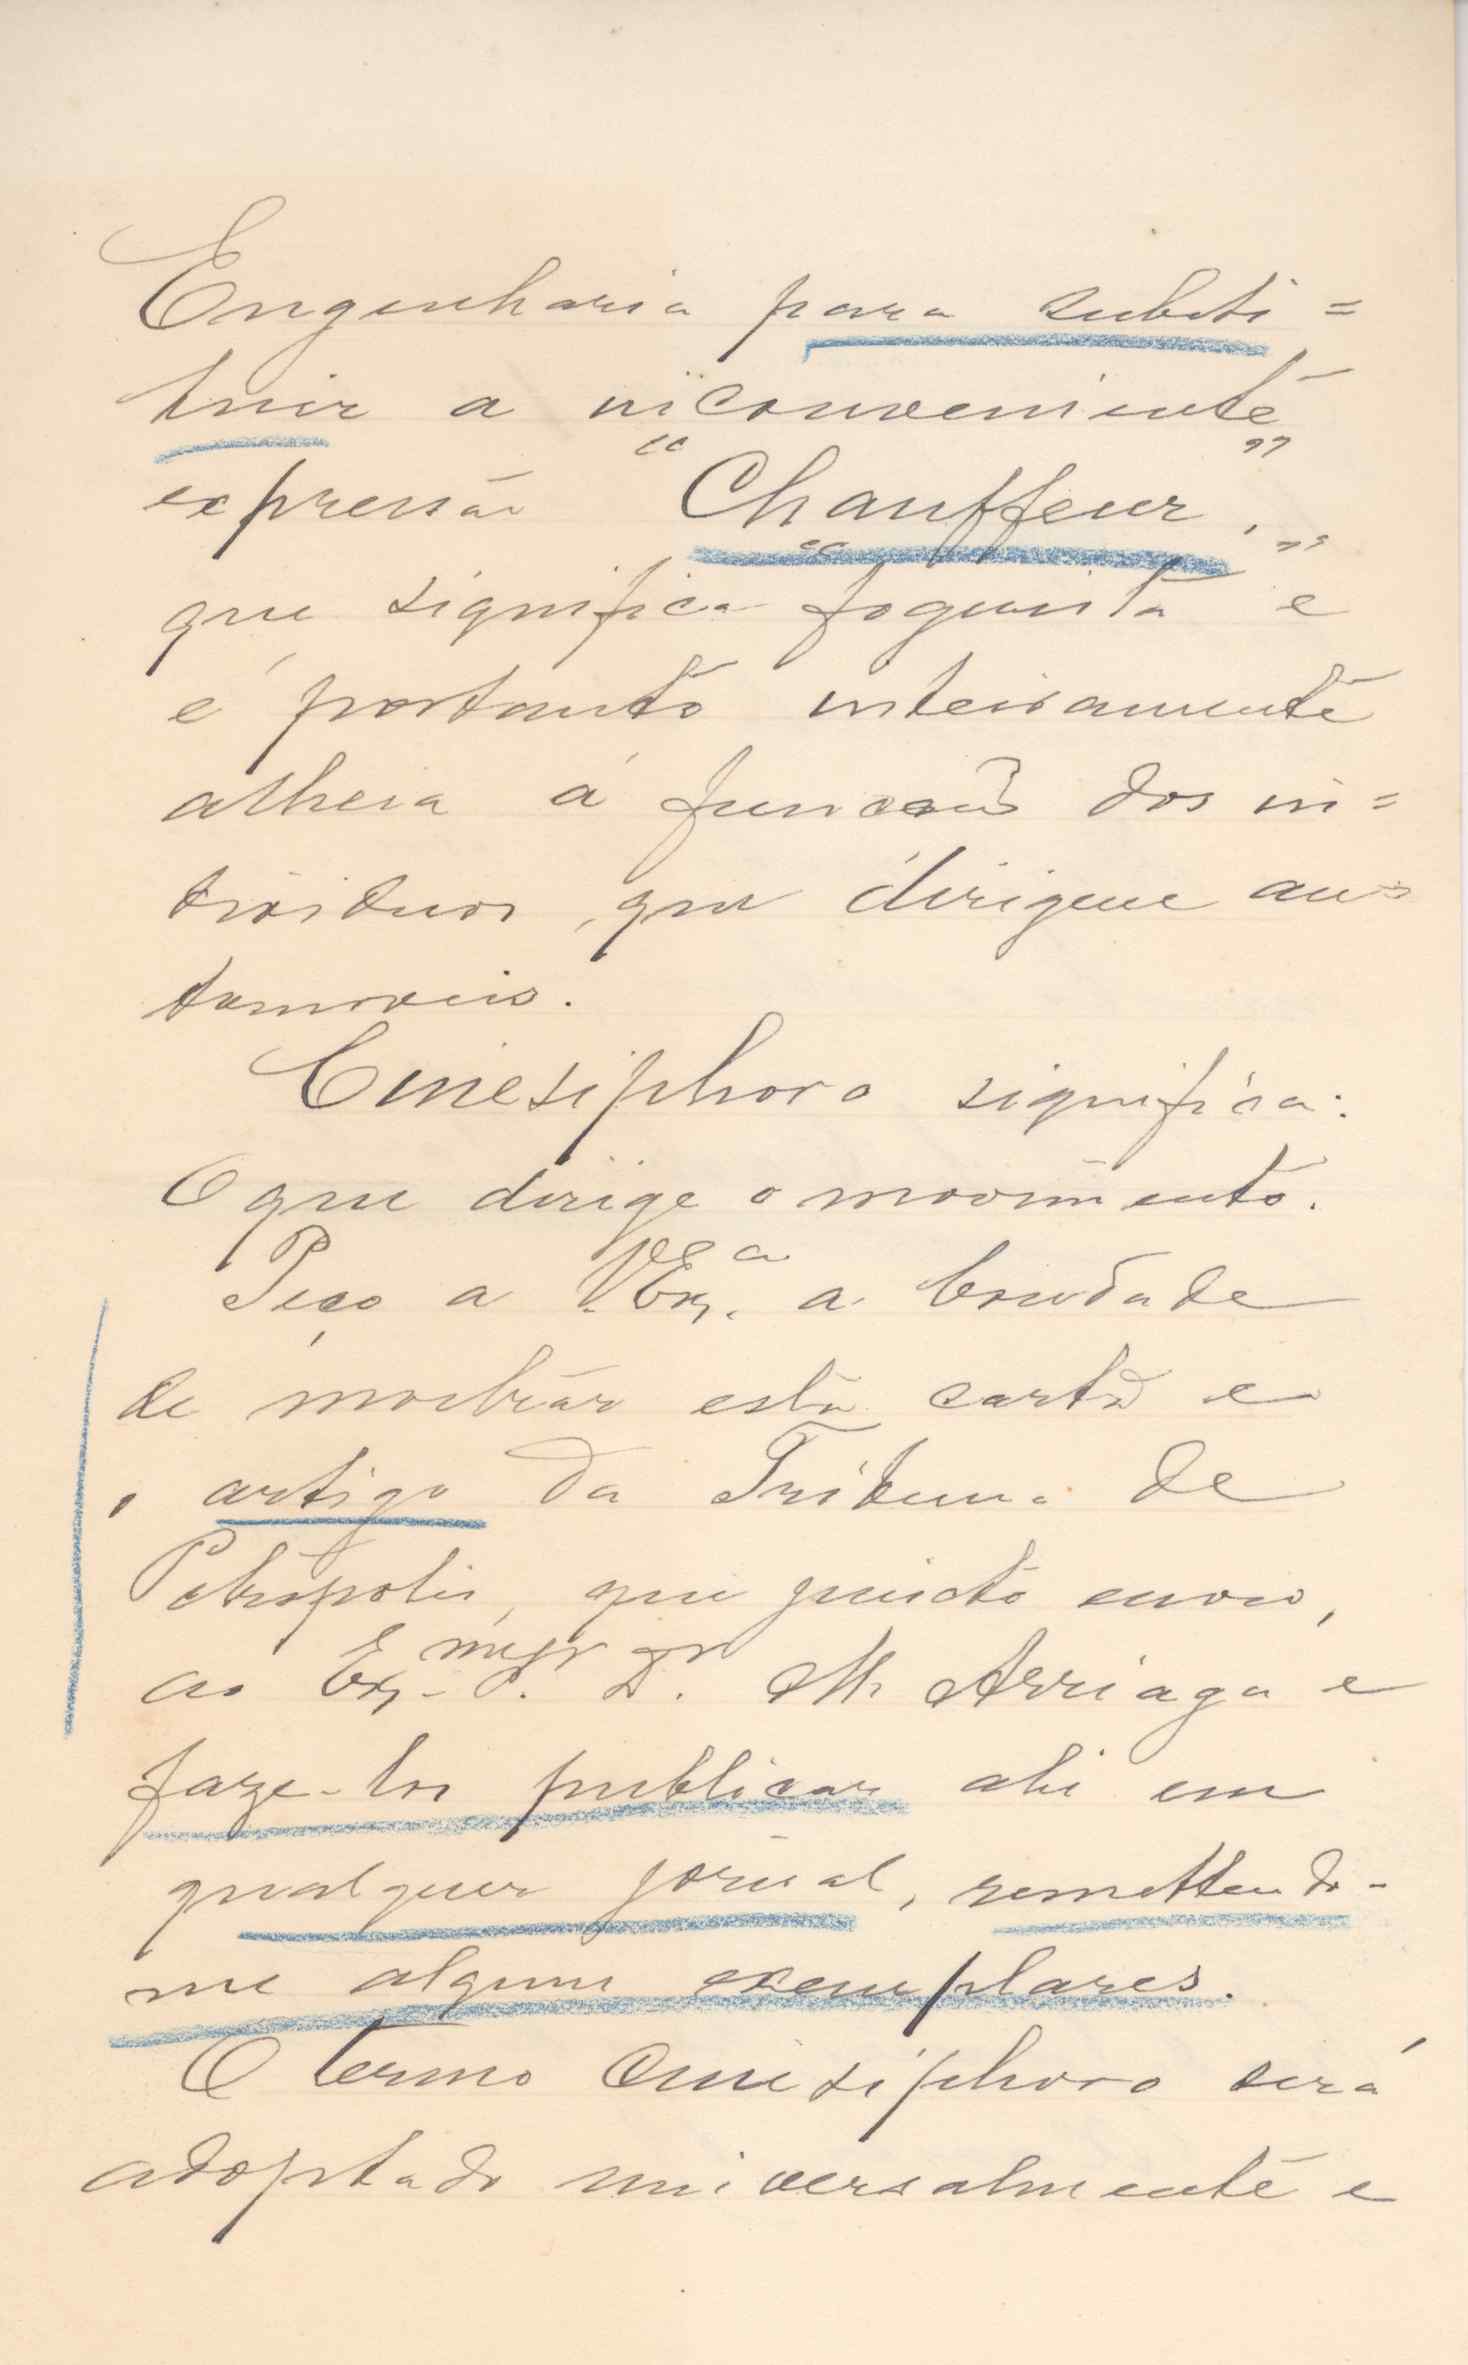 Engenharia para substi=
tuir a inconveniente
expressão "Chauffeur",
que significa "foguista" e
é portanto inteiramente
alheia á funcção dos in=
dividuos, que dirigem au=
tomoveis.
Cinesiphoro significa:
O que dirige o movimento.
Peço a V. Ex.ª a bondade
de mostrar esta carta e
o artigo da Tribuna de
Petropolis, que juncto envio,
ao Ex.mo Sr. Dr. M. Arriaga e
faze-los publicar ahi em
qualquer jornal, remettendo-
me alguns exemplares.
O termo Cinesiphoro será
adoptado universalmente e